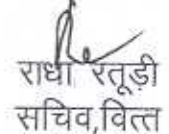 राधा रतूड़ी
सचिव,वित्त